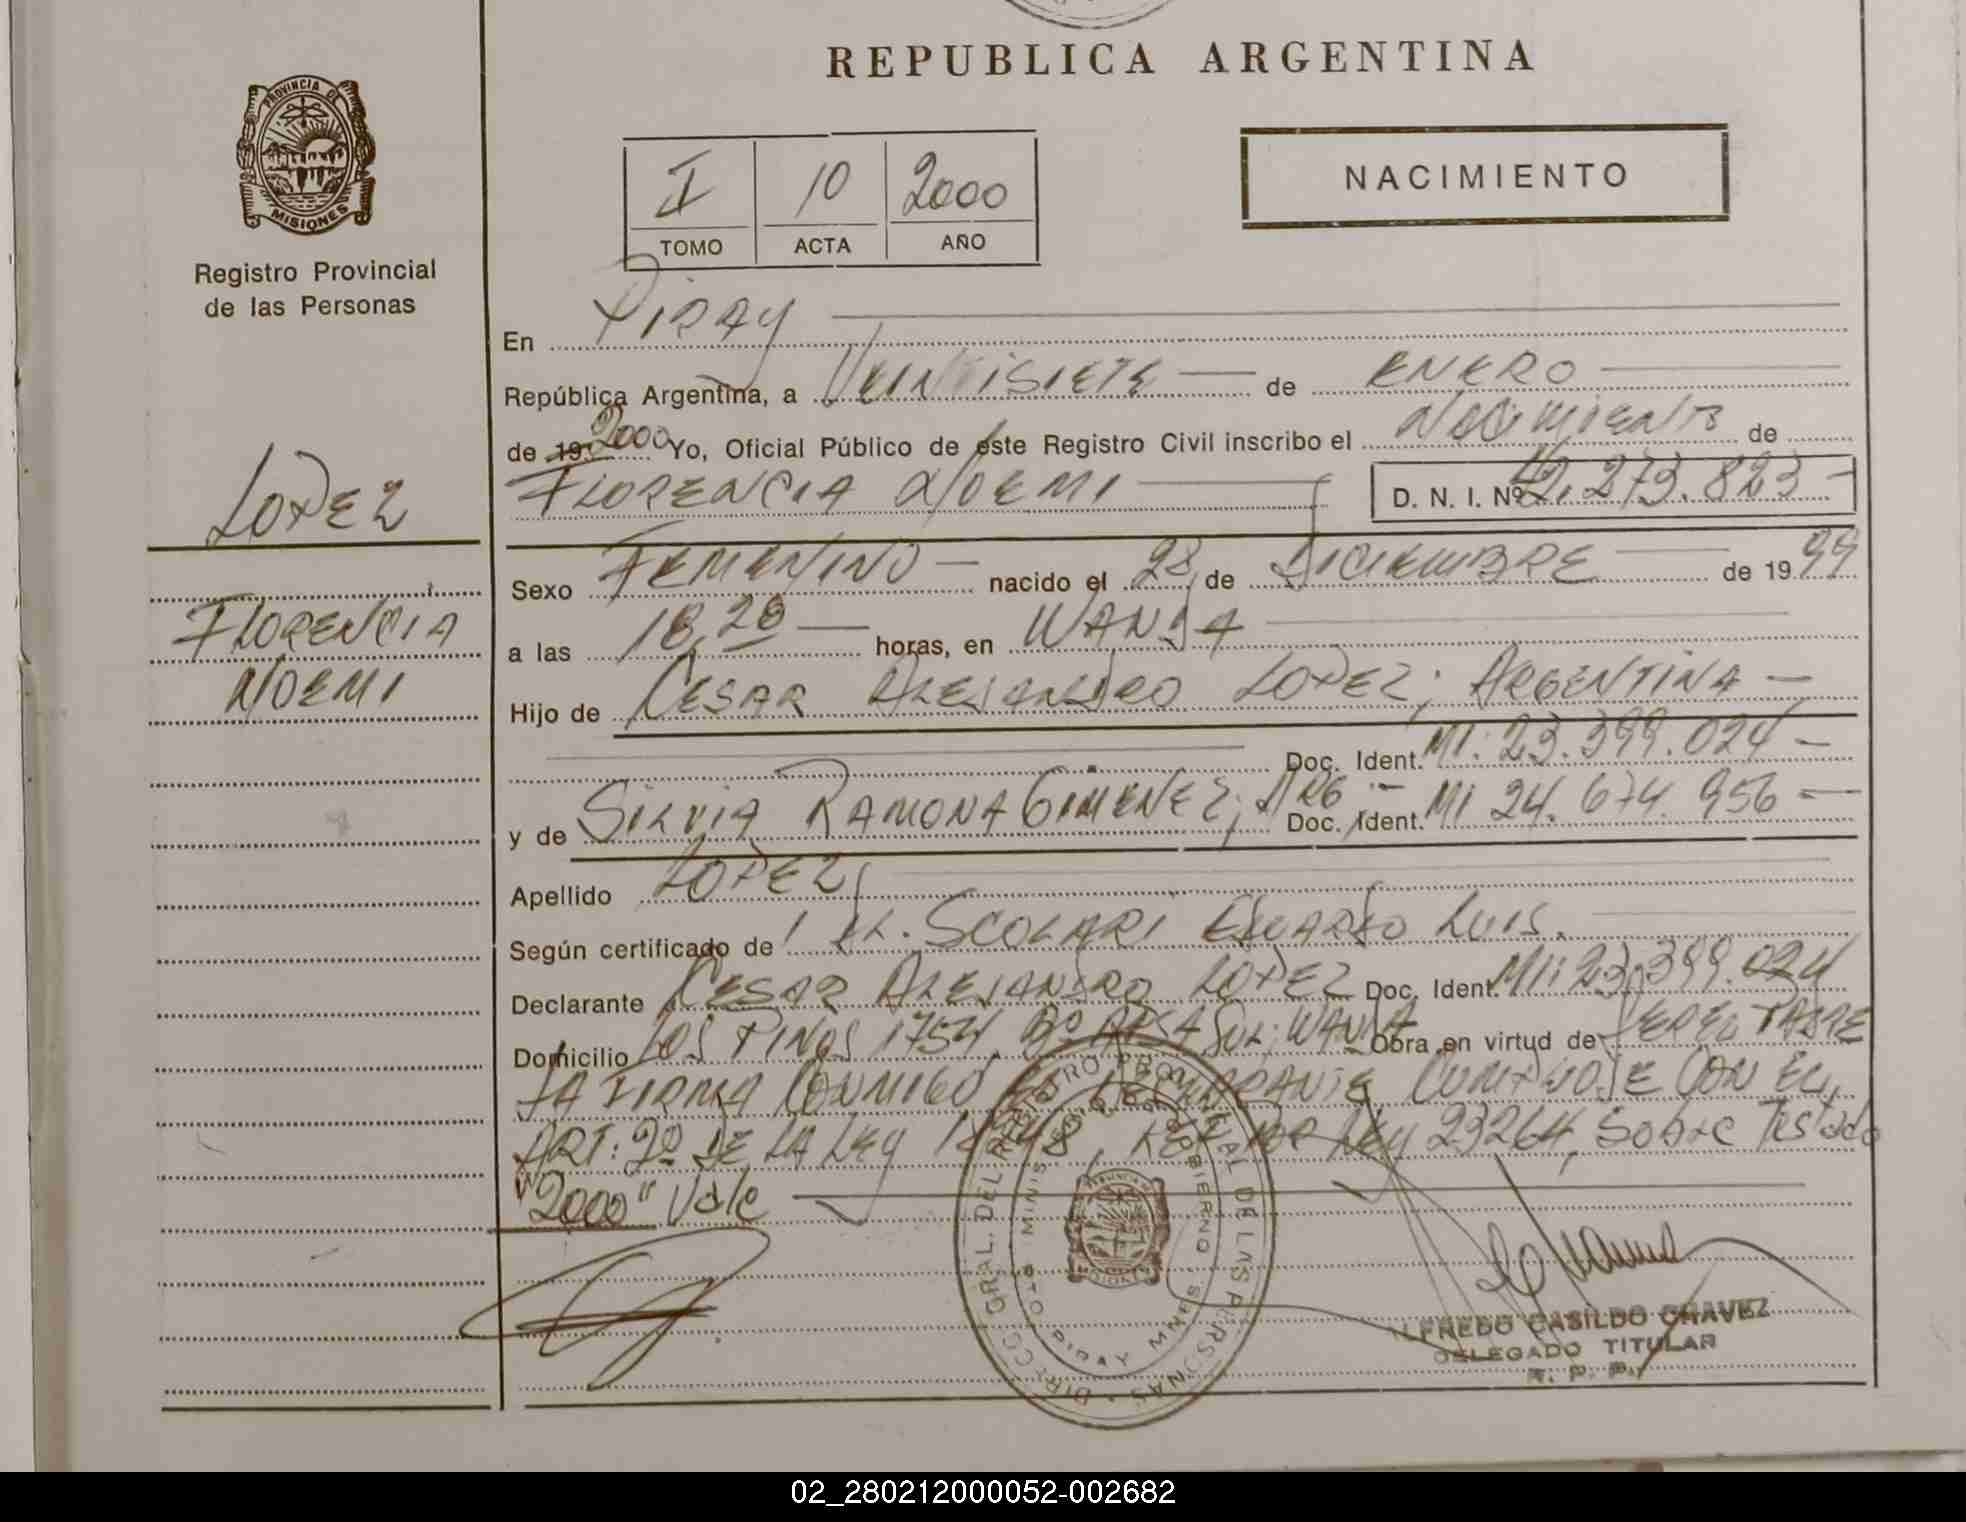 REPUBLICA ARGENTINA
PROVINCIA DE
MISIONES
Registro Provincial
de las Personas
I 10 2000
TOMO ACTA AÑO
NACIMIENTO
LOPEZ
FLORENCIA
NOEMI
En PIRAY
República Argentina, a VEINTISIETE de ENERO
de 19 2000 Yo, Oficial Público de este Registro Civil inscribo el NACIMIENTO de
FLORENCIA NOEMI D. N. I. Nº 42.273.823
Sexo FEMENINO nacido el 28 de DICIEMBRE de 1999
a las 18,20 horas, en WANDA
Hijo de CESAR ALEJANDRO LOPEZ; ARGENTINA
Doc. Ident. MI: 23.399.024
y de SILVIA RAMONA GIMENEZ; ARG Doc. Ident. MI 24.674.956
Apellido LOPEZ
Según certificado de SCOLARI EDUARDO LUIS.
Declarante CESAR ALEJANDRO LOPEZ Doc. Ident. MI: 23.399.024
Domicilio LOS PINOS 1754 Bº SUR; WANDA Obra en virtud de SER EL PADRE
LA FIRMA CONMIGO EL DECLARANTE CUMPLIOSE CON EL
ART: 2º DE LA LEY 18248, LEY 23264, Sobre Testado
"2000" Vale
DIRECC. GRAL. DEL REGISTRO PROVINCIAL DE LAS PERSONAS
PTO. PIRAY MNES
ALFREDO CASILDO CHAVEZ
DELEGADO TITULAR
R. P. P.
02_280212000052-002682